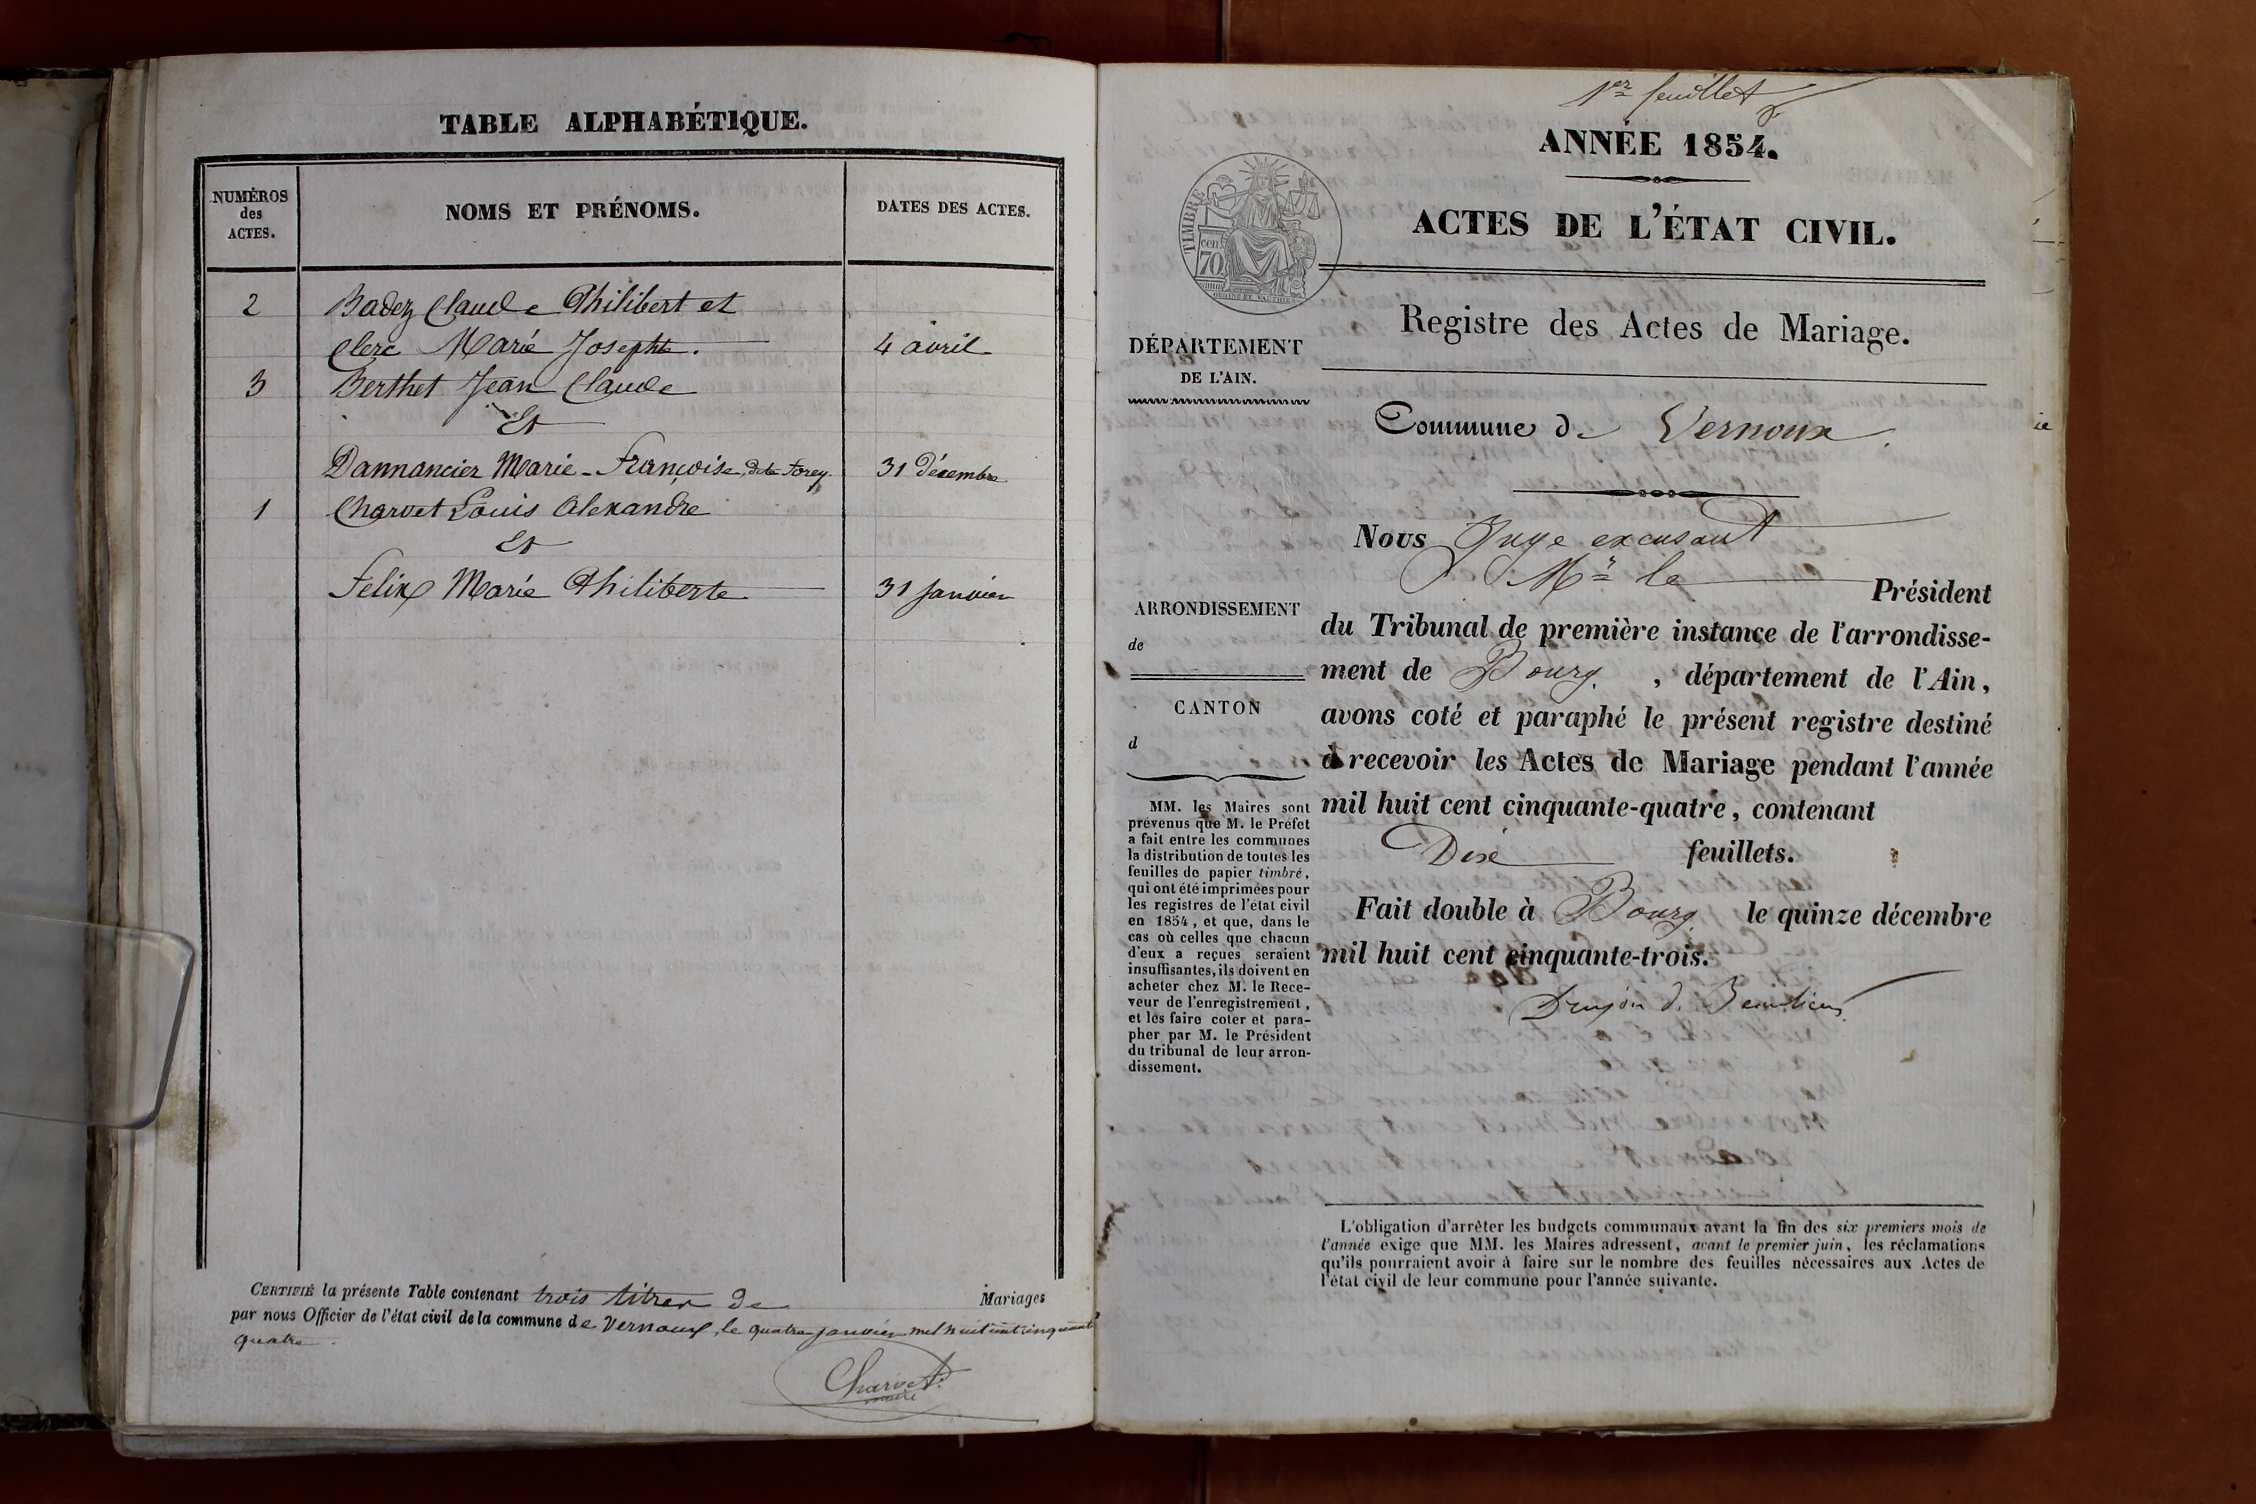 TABLE ALPHABÉTIQUE.
NUMÉROS
des
ACTES.
NOMS ET PRÉNOMS.
DATES DES ACTES.
2 Badez Claude Philibert et
Clerc Marie Josephte. 4 avril
3 Berthet Jean Claude
Et
Dannancier Marie-Françoise dite Forey 31 décembre
1 Charvet Louis Alexandre
Et
Felix Marie Philiberte 31 janvier
CERTIFIÉ la présente Table contenant trois titres de Mariages
par nous Officier de l'état civil de la commune de Vernoux, le quatre janvier mil huit cent cinquante
quatre.
Charvet
maire
1er feuillet
ANNÉE 1854.
ACTES DE L'ÉTAT CIVIL.
TIMBRE
cen.
70
Registre des Actes de Mariage.
DÉPARTEMENT
DE L'AIN.
Commune de Vernoux
Nous Juge excusant
Mr le Président
du Tribunal de première instance de l'arrondisse-
ment de Bourg, département de l'Ain,
avons coté et paraphé le présent registre destiné
à recevoir les Actes de Mariage pendant l'année
mil huit cent cinquante-quatre, contenant
Dix feuillets.
Fait double à Bourg le quinze décembre
mil huit cent cinquante-trois.
Drujon de Beaulieu
ARRONDISSEMENT
de
CANTON
d
MM. les Maires sont
prévenus que M. le Préfet
a fait entre les communes
la distribution de toutes les
feuilles de papier timbré,
qui ont été imprimées pour
les registres de l'état civil
en 1854, et que, dans le
cas où celles que chacun
d'eux a reçues seraient
insuffisantes, ils doivent en
acheter chez M. le Rece-
veur de l'enregistrement,
et les faire coter et para-
pher par M. le Président
du tribunal de leur arron-
dissement.
L'obligation d'arrêter les budgets communaux avant la fin des six premiers mois de
l'année exige que MM. les Maires adressent, avant le premier juin, les réclamations
qu'ils pourraient avoir à faire sur le nombre des feuilles nécessaires aux Actes de
l'état civil de leur commune pour l'année suivante.